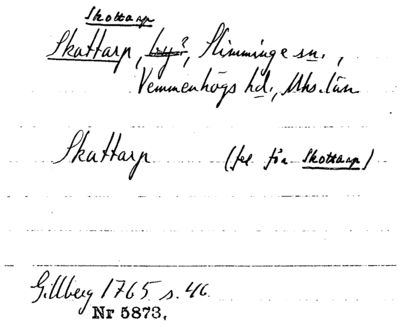 Skottarp
Skattarp, by?, Slimminge sn.,
Vemmenhögs hd., Mhs. län
Skattarp (fel för Skottarp)
Gillberg 1765 s. 46
Nr 5873.